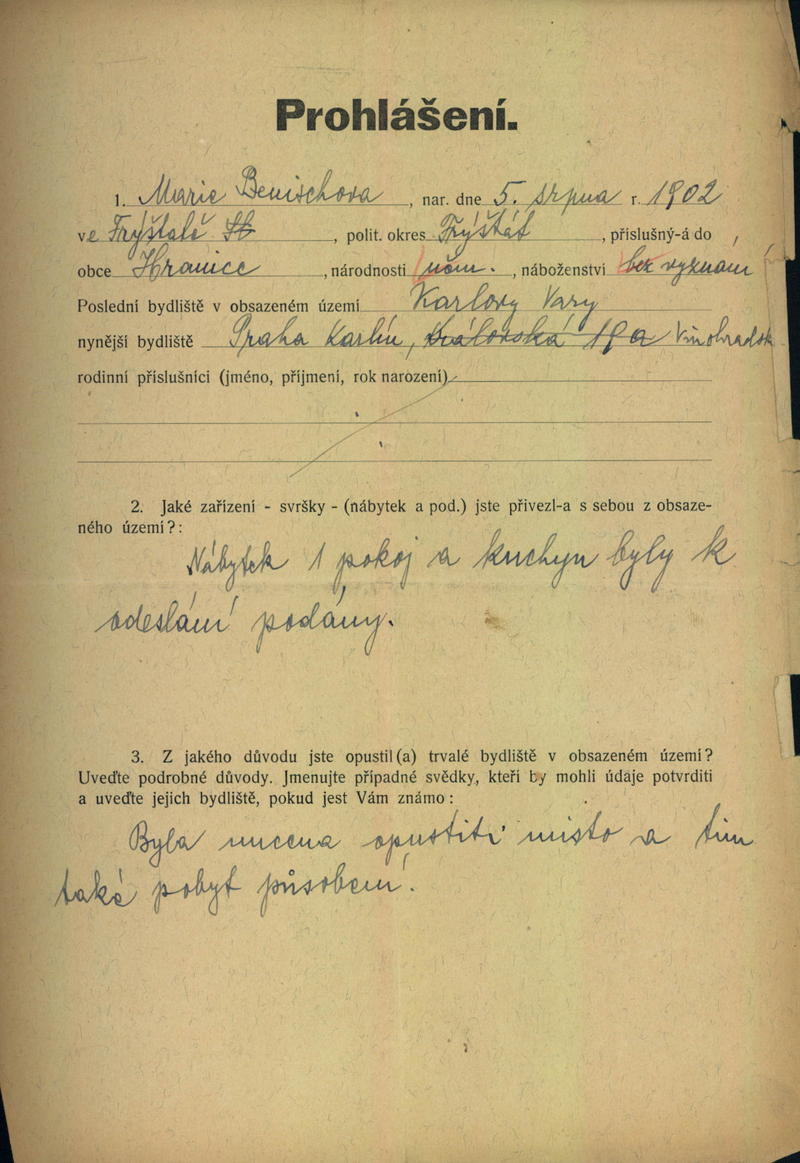 Prohlášení.
1. Marie Benischova, nar. dne 5. srpna r. 1902
ve Frýštatě, polit. okres Frýštát, příslušný-á do
obce Hranice, národnosti něm., náboženství bez vyznání
Poslední bydliště v obsazeném území Karlovy Vary
nynější bydliště Praha Karlín, Královská 19a Vinohradsk
rodinní příslušníci (jméno, příjmení, rok narození)
2. Jaké zařízení - svršky - (nábytek a pod.) jste přivezl-a s sebou z obsaze-
ného území?:
Nábytek 1 pokoj a kuchyn byly k
odeslání podány.
3. Z jakého důvodu jste opustil(a) trvalé bydliště v obsazeném území?
Uveďte podrobné důvody. Jmenujte případné svědky, kteří by mohli údaje potvrditi
a uveďte jejich bydliště, pokud jest Vám známo:
Byla nucena opustiti misto a tim
také pobyt působení.